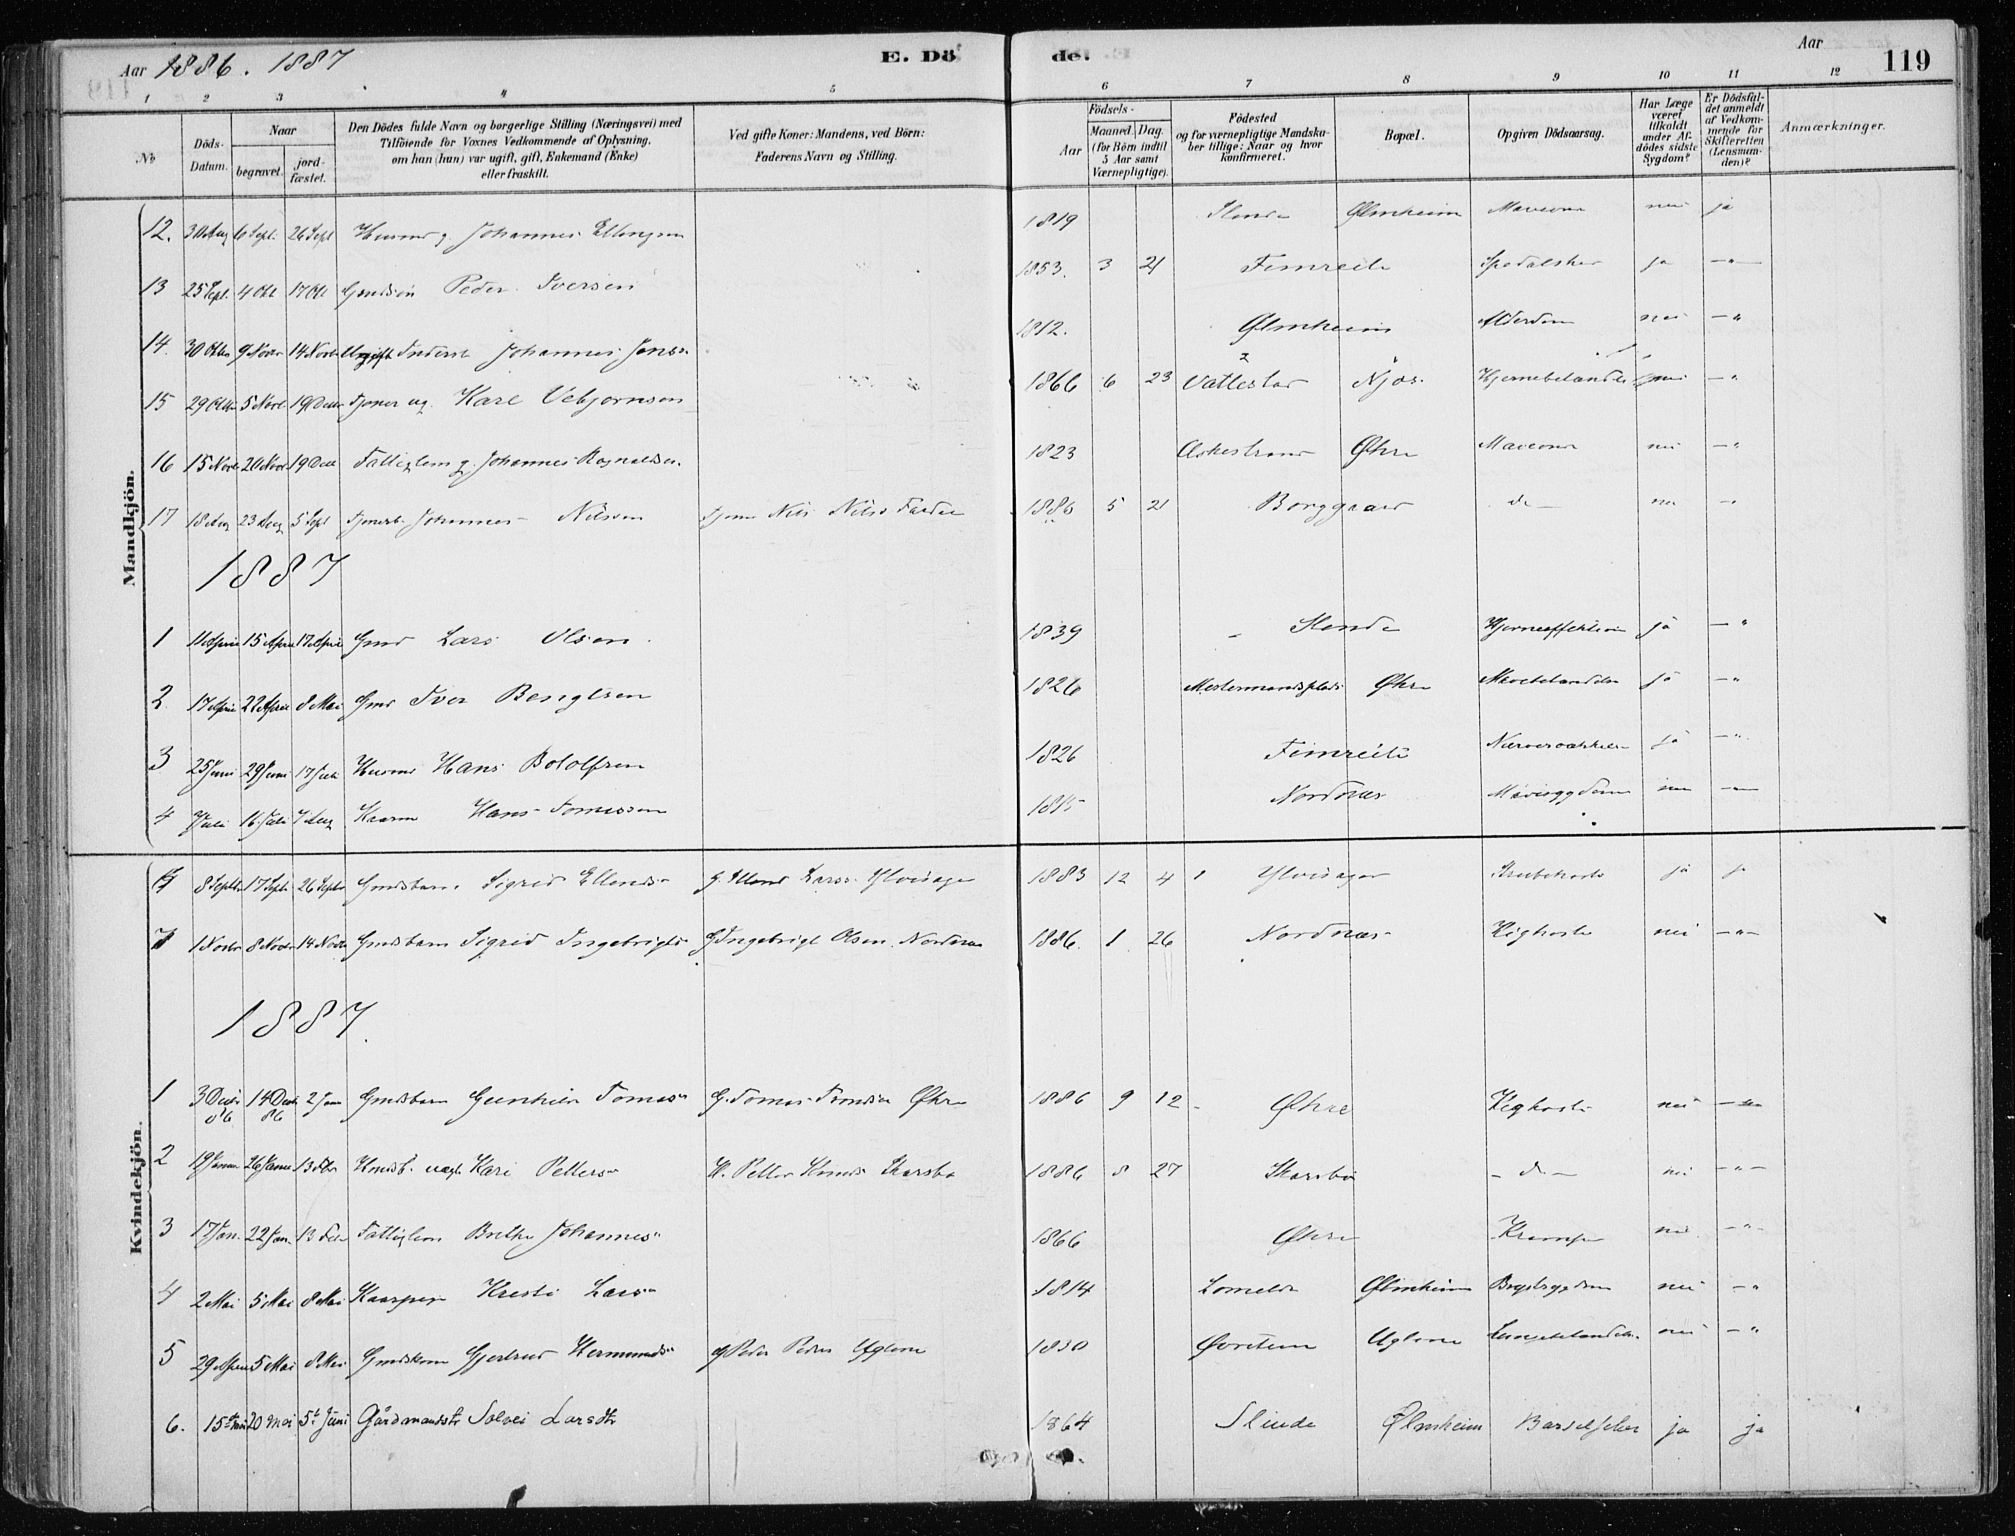 Aar 1886. 1887 E. Dö de. Aar 119
1 2 3 4 5 6 7 8 9 10 11 12
No
Döds-Datum.
Naar begravet. jordfæstet.
Den Dödes fulde Navn og borgerlige Stilling (Næringsvei) med Tilföiende for Voxnes Vedkommende af Oplysning, om han (hun) var ugift, gift, Enkemand (Enke) eller fraskilt.
Ved gifte Koner: Mandens, ved Börn: Faderens Navn og Stilling.
Födsels- Aar Maaned. Dag. (for Börn indtil 5 Aar samt Værnepligtige).
Födested og for værnepligtige Mandskaber tillige: Naar og hvor konfirmeret.
Bopæl.
Opgiven Dödsaarsag.
Har Læge været tilkaldt under Afdödes sidste Sygdom?
Er Dödsfaldet anmeldt af Vedkommende for Skifteretten (Lensmanden)?
Anmærkninger.
Mandkjön.
12. 30 Aug 6 Sept. 26 Sept Husmd g. Johannes Ellingsen 1819 Slinde Ølmheim nei ja
13 25 Sept. 4 Okt 17 Okt Gmdsøn Peder Iversen 1853. 3 21 Fimreite Spedalsker ja — " —
14. 30 Oktbr 9 Novbr 14 Novbr Ugift Inderst Johannes Jonsen 1812. Ølmheim Alderdom nei — "
15 29 Oktbr 5 Novbr 19 Decbr Tjener ug. Karl Vebjørnsen 1866 6 23 Vattestad Njøs. Hjernebetændelse nei — "
16 15 Novbr 20 Novbr 19 Decbr Fattiglem g. Johannes Ragnaldsen. 1823 Askestrand Øhre nei — "
17 18 Aug 23 Aug 5 Sept Tjenerb. Johannes Nilsen Tjener Nils Nilsen 1886 5 21 Borggaard do — nei — "
1887
1 11 April 15 April 17 April Gmd Lars Olsen. 1839 Slinde Hjerneaffektion ja — "
2 17 April 22 April 8 Mai Gmd Iver Bengtsen 1826 Mestermandsplads Øhre Mavebetændelse ja — "
3 25 Juni 29 Juni 17 Juli Husmd Hans Botolfsen 1826 Fimreite ja — "
4 Juli 16 Juli 7 Aug Kaarm Hans Tomessen 1815 Nordnæs Mavesygdom nei — "
Kvindekjön.
8 Septbr 17 Septbr 26 Septbr Gmdsbarn. Sigrid Ellendsd G. Ellend Larss. Ylvisager 1883 12 4 Ylvisager Strubehoste ja ja
7 1 Novbr 8 Novbr 14 Novbr Gmdsbarn Sigrid Ingebrigtsd G. Ingebrigt Olsen Nordnæs 1886. 1 26 Nordnæs Kighoste nei — " —
1887.
1 3 Decbr 86 14 Decbr 86 2 Jan Gmdsbarn Gunhild Tomasd G. Tomas Tomassen Øhre 1886 9 12 Øhre Kighoste nei — " —
2 19 Januar 26 Januar 13 Febr Hmdsb. uægt Kari Pettersd H. Petter Knuds Skarsbø 1886 8 27 Skarsbø — do — nei — " —
3 17 Jan. 22 Jan. 13 Febr Fattiglem Brithe Johannesd 1866 Øhre Krampe nei — " —
4 2 Mai 5 Mai 8 Mai Kaarpige Kristi Larsd 1814 Lomelde Ølmheim Brystsygdom nei — "
5 29 April 5 Mai 8 Mai Gmdskone Gjertrud Hermundsd G. Peder Peders Uglum 1830 Øvretun Uglum Lungebetændelse. nei — "
6. 15de Mai 20 Mai 5te Juni Gårdmandsk Solvei Larsdtr 1864 Slinde Ølmheim Barselfeber ja ja